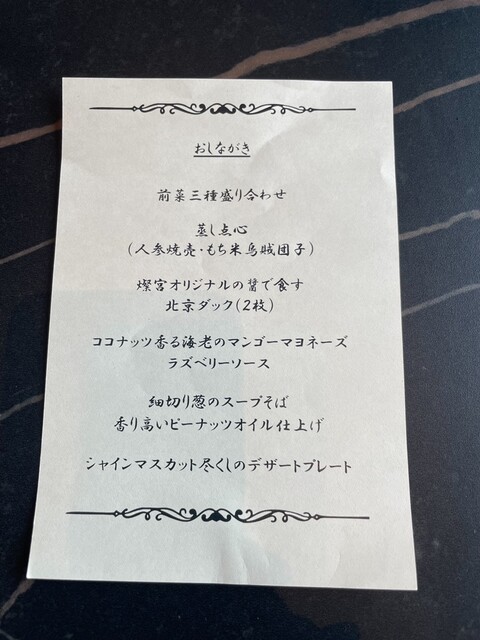 おしながき
前菜三種盛り合わせ
蒸し点心
(人参焼売・もち米烏賊団子)
燦宮オリジナルの醤で食す
北京ダック(2枚)
ココナッツ香る海老のマンゴーマヨネーズ
ラズベリーソース
細切り葱のスープそば
香り高いピーナッツオイル仕上げ
シャインマスカット尽くしのデザートプレート